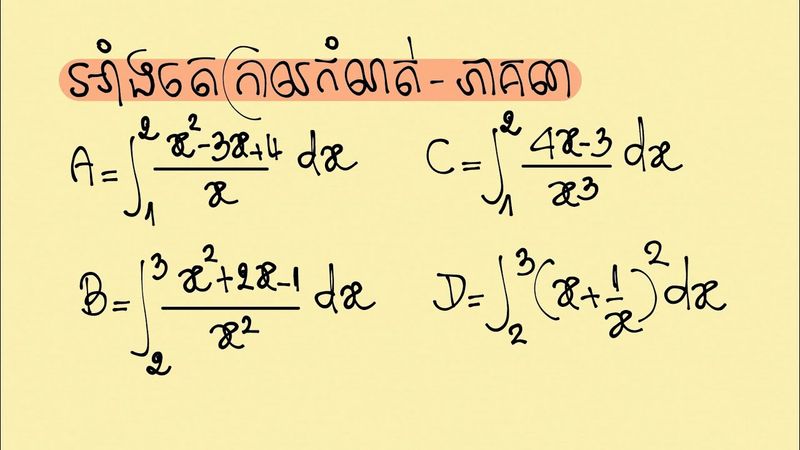 អាំងតេក្រាលកំណត់ - ភាគ៣
A = ∫₁² (x² - 3x + 4)/x dx
C = ∫₁² (4x - 3)/x³ dx
B = ∫₂³ (x² + 2x - 1)/x² dx
D = ∫₂³ (x + 1/x)² dx